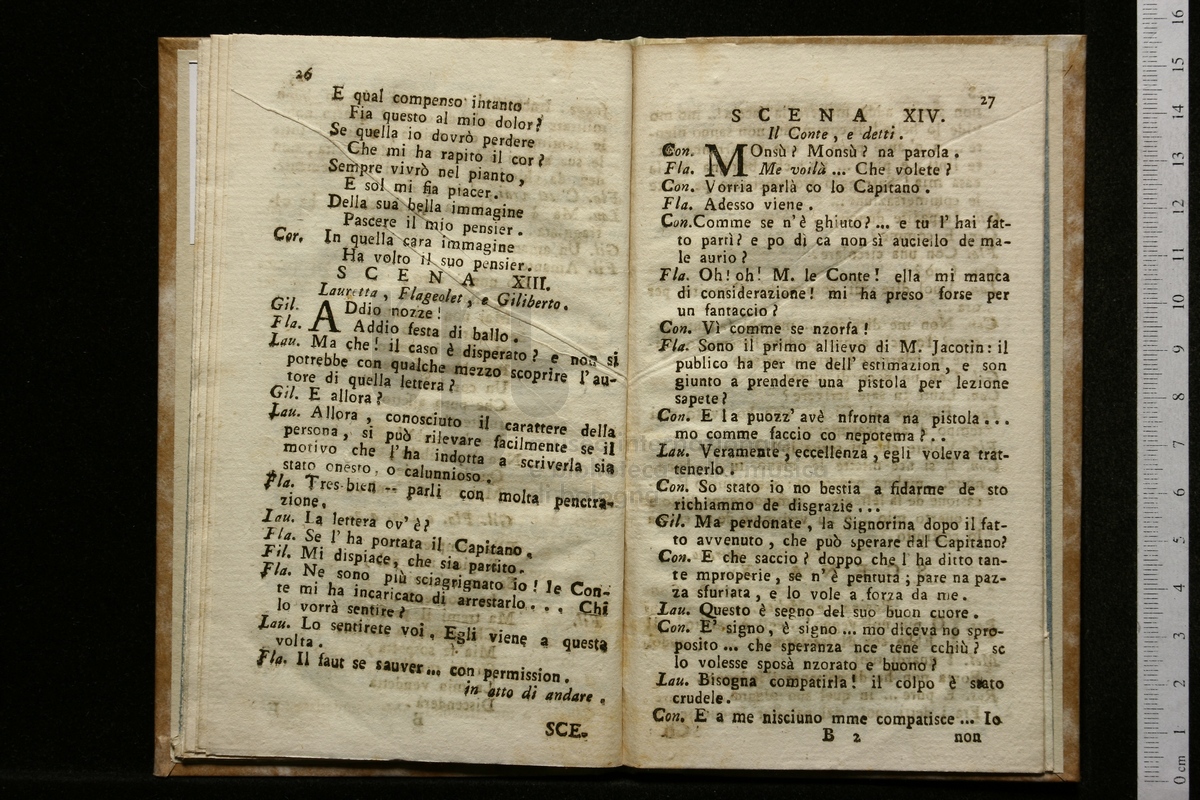 26
E qual compenso intanto
Fia questo al mio dolor?
Se quella io dovrò perdere
Che mi ha rapito il cor?
Sempre vivrò nel pianto,
E sol mi fia piacer.
Della sua bella immagine
Pascere il mio pensier.
Cor. In quella cara immagine
Ha volto il suo pensier.
SCENA XIII.
Lauretta, Flageolet, e Giliberto.
Gil. ADdio nozze!
Fla. Addio festa di ballo.
Lau. Ma che! il caso è disperato? e non si
potrebbe con qualche mezzo scoprire l'au-
tore di quella lettera?
Gil. E allora?
Lau. Allora, conosciuto il carattere della
persona, si può rilevare facilmente se il
motivo che l'ha indotta a scriverla sia
stato onesto, o calunnioso.
Fla. Tres-bien -- parli con molta penetra-
zione.
Lau. La lettera ov'è?
Fla. Se l'ha portata il Capitano.
Fil. Mi dispiace, che sia partito.
Fla. Ne sono più sciagrignato io! le Con-
te mi ha incaricato di arrestarlo... Chi
lo vorrà sentire?
Lau. Lo sentirete voi, Egli viene a questa
volta.
Fla. Il faut se sauver... con permission.
in atto di andare.
SCE.
27
SCENA XIV.
Il Conte, e detti.
Con. MOnsù? Monsù? na parola.
Fla. Me voilà... Che volete?
Con. Vorria parlà co lo Capitano.
Fla. Adesso viene.
Con. Comme se n'è ghiuto?... e tu l'hai fat-
to partì? e po dì ca non sì auciello de ma-
le aurio?
Fla. Oh! oh! M. le Conte! ella mi manca
di considerazione! mi ha preso forse per
un fantaccio?
Con. Vì comme se nzorfa!
Fla. Sono il primo allievo di M. Jacotin: il
publico ha per me dell'estimazion, e son
giunto a prendere una pistola per lezione
sapete?
Con. E la puozz' avè nfronta na pistola...
mo comme faccio co nepotema?..
Lau. Veramente, eccellenza, egli voleva trat-
tenerlo.
Con. So stato io no bestia a fidarme de sto
richiammo de disgrazie...
Gil. Ma perdonate, la Signorina dopo il fat-
to avvenuto, che può sperare dal Capitano?
Con. E che saccio? doppo che l'ha ditto tan-
te mproperie, se n'è pentuta; pare na paz-
za sfuriata, e lo vole a forza da me.
Lau. Questo è segno del suo buon cuore.
Con. E' signo, è signo... mo diceva no spro-
posito... che speranza nce tene cchiù? se
lo volesse sposà nzorato e buono?
Lau. Bisogna compatirla! il colpo è stato
crudele.
Con. E a me nisciuno mme compatisce... Io
B 2 non